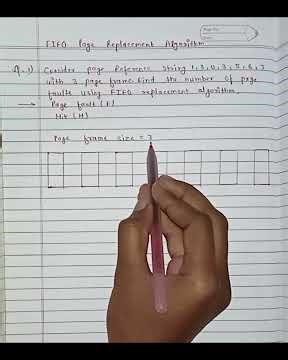 FIFO Page Replacement Algorithm
Q.1) Consider page Reference string 1, 3, 0, 3, 5, 6, 3
with 3 page frame. find the number of page
faults using FIFO replacement algorithm.
→ Page fault (F)
Hit (H)
Page frame size = 3